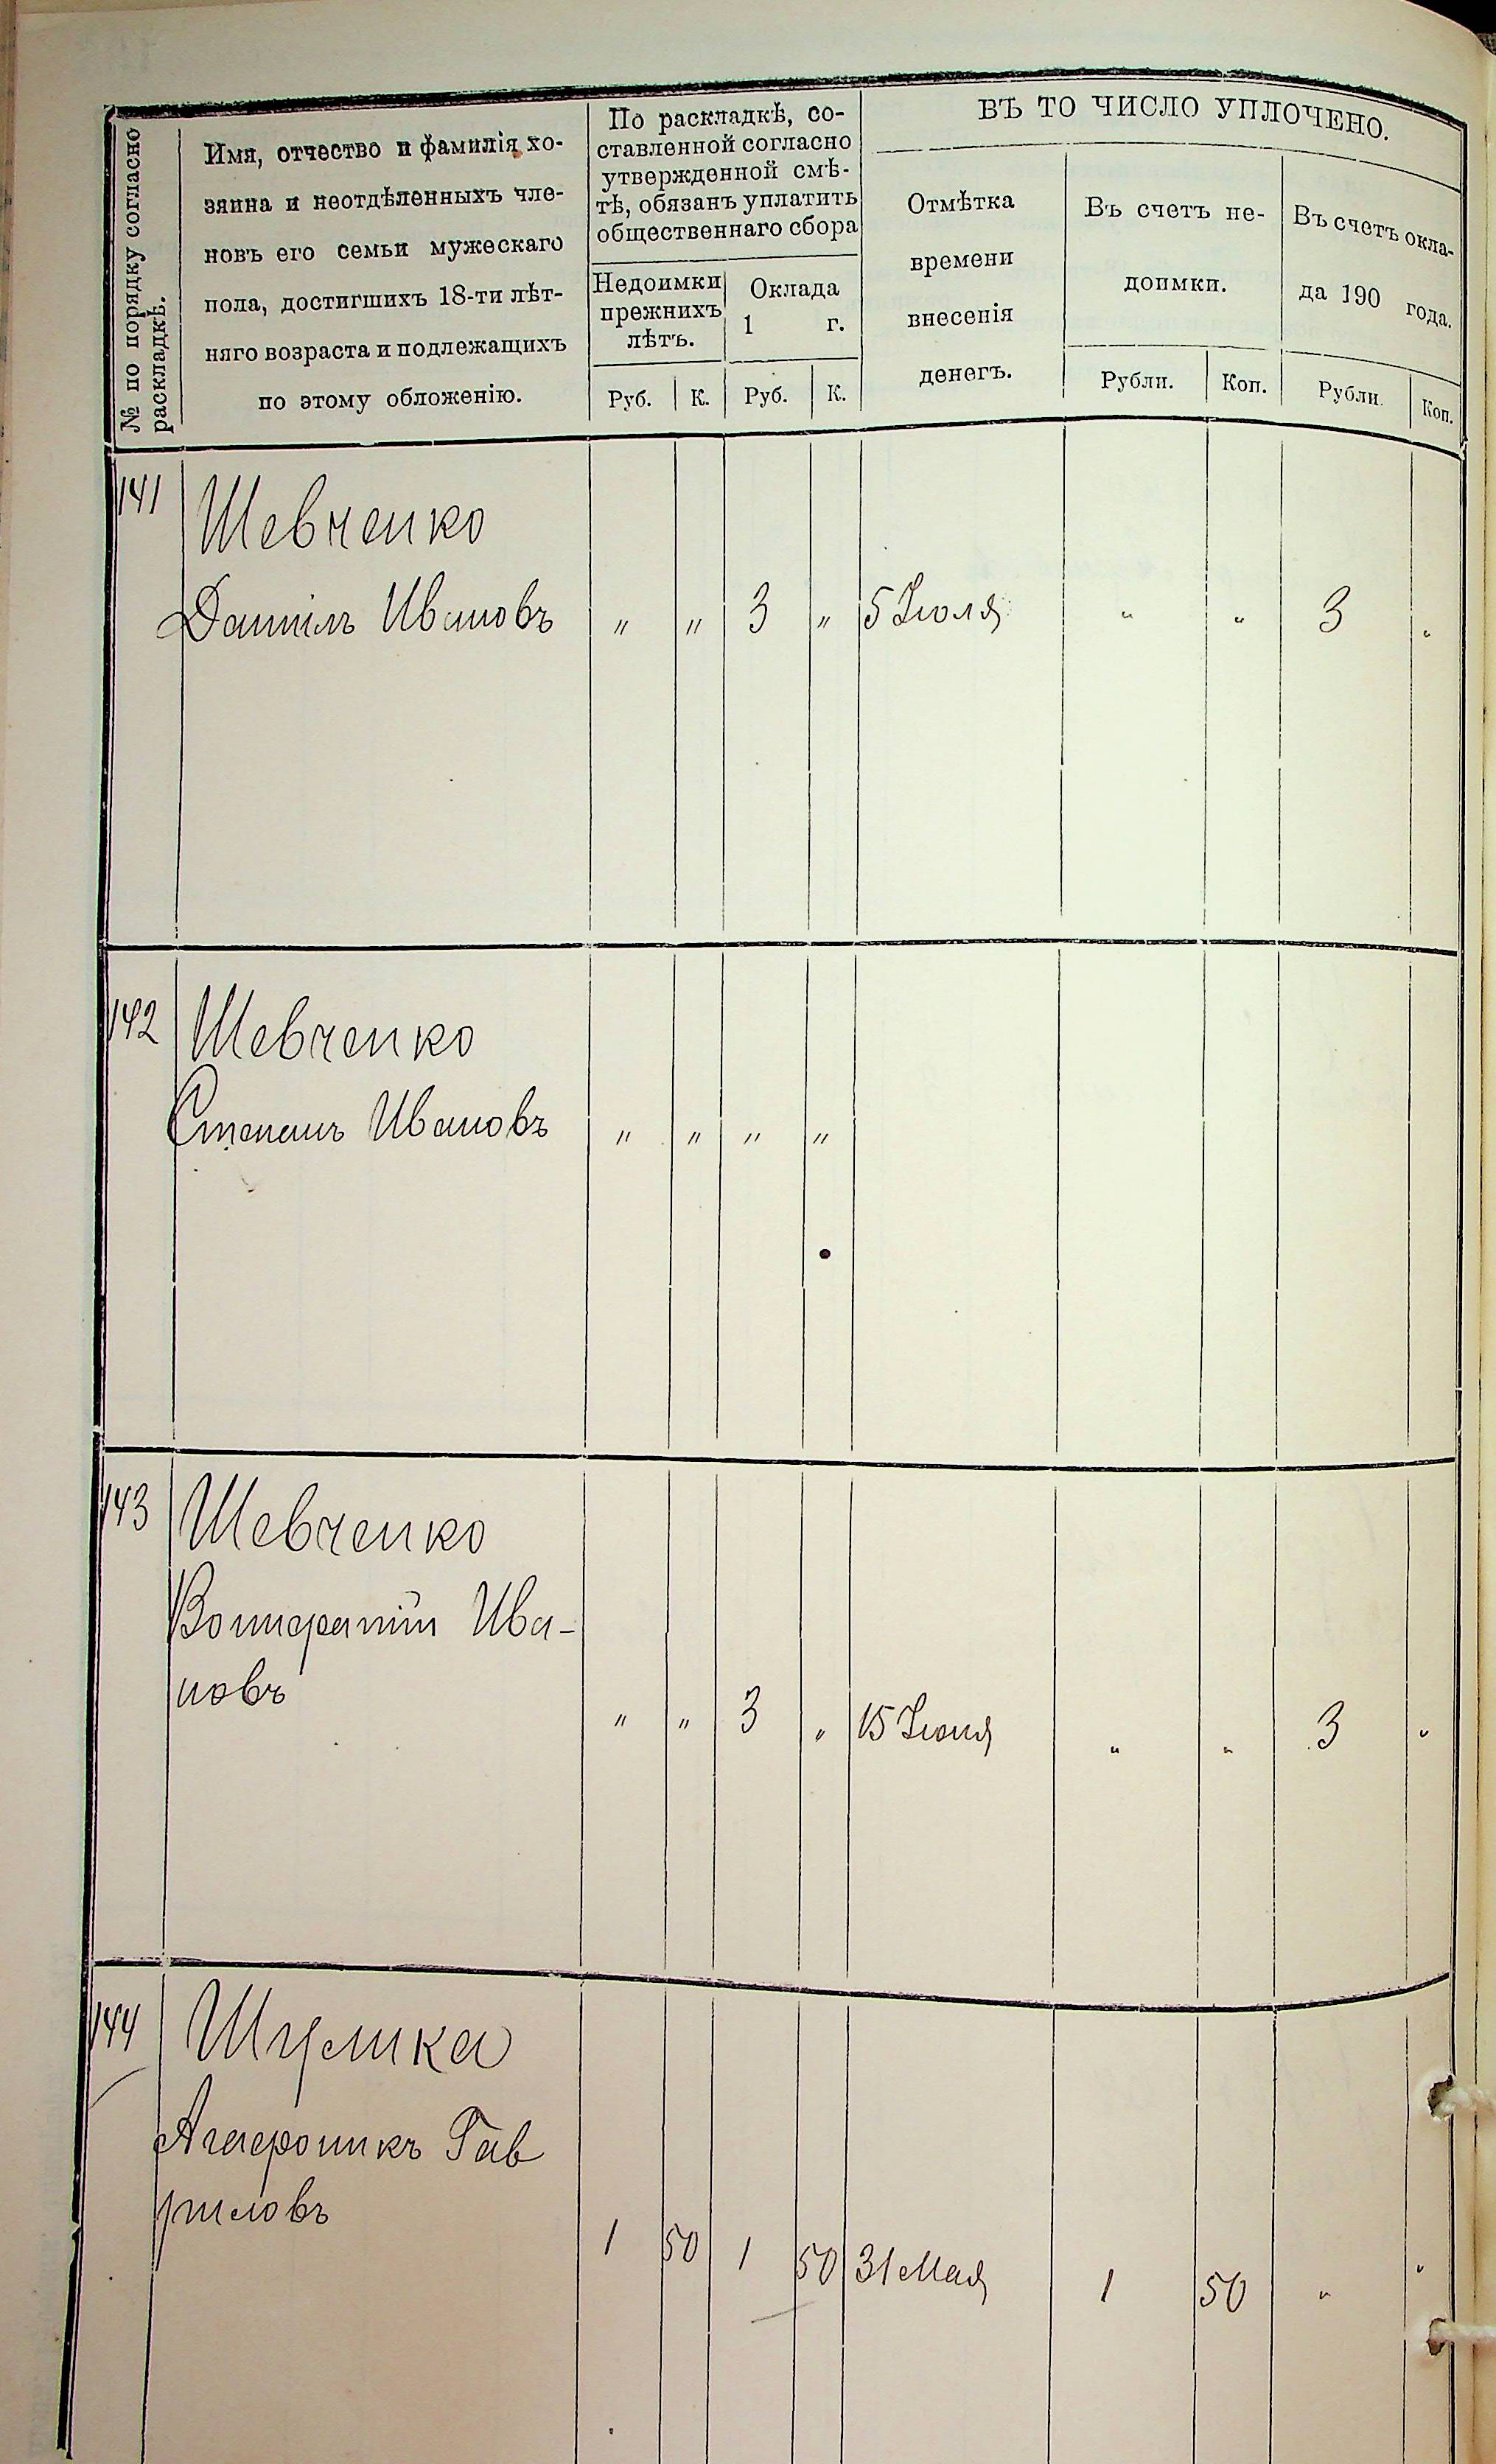 № по порядку согласно
раскладкѣ.
Имя, отчество и фамилія хо-
зяина и неотдѣленныхъ чле-
новъ его семьи мужескаго
пола, достигшихъ 18-ти лѣт-
няго возраста и подлежащихъ
по этому обложенію.
По раскладкѣ, со-
ставленной согласно
утвержденной смѣ-
тѣ, обязанъ уплатить
общественнаго сбора
Недоимки
прежнихъ
лѣтъ.
Оклада
1 г.
Руб. К. Руб. К.
ВЪ ТО ЧИСЛО УПЛОЧЕНО.
Отмѣтка
времени
внесенія
денегъ.
Въ счетъ не-
доимки.
Рубли. Коп.
Въ счетъ окла-
да 190 года.
Рубли. Коп.
141 Шевченко
Даниилъ Ивановъ „ „ 3 „ 5 Іюля „ „ 3 „
142 Шевченко
Степанъ Ивановъ „ „ „ „
143 Шевченко
Ива-
новъ „ „ 3 „ 15 Іюня „ „ 3 „
144 Шулика
Агафоникъ Гав
риловъ 1 50 1 50 31 Мая 1 50 „ „